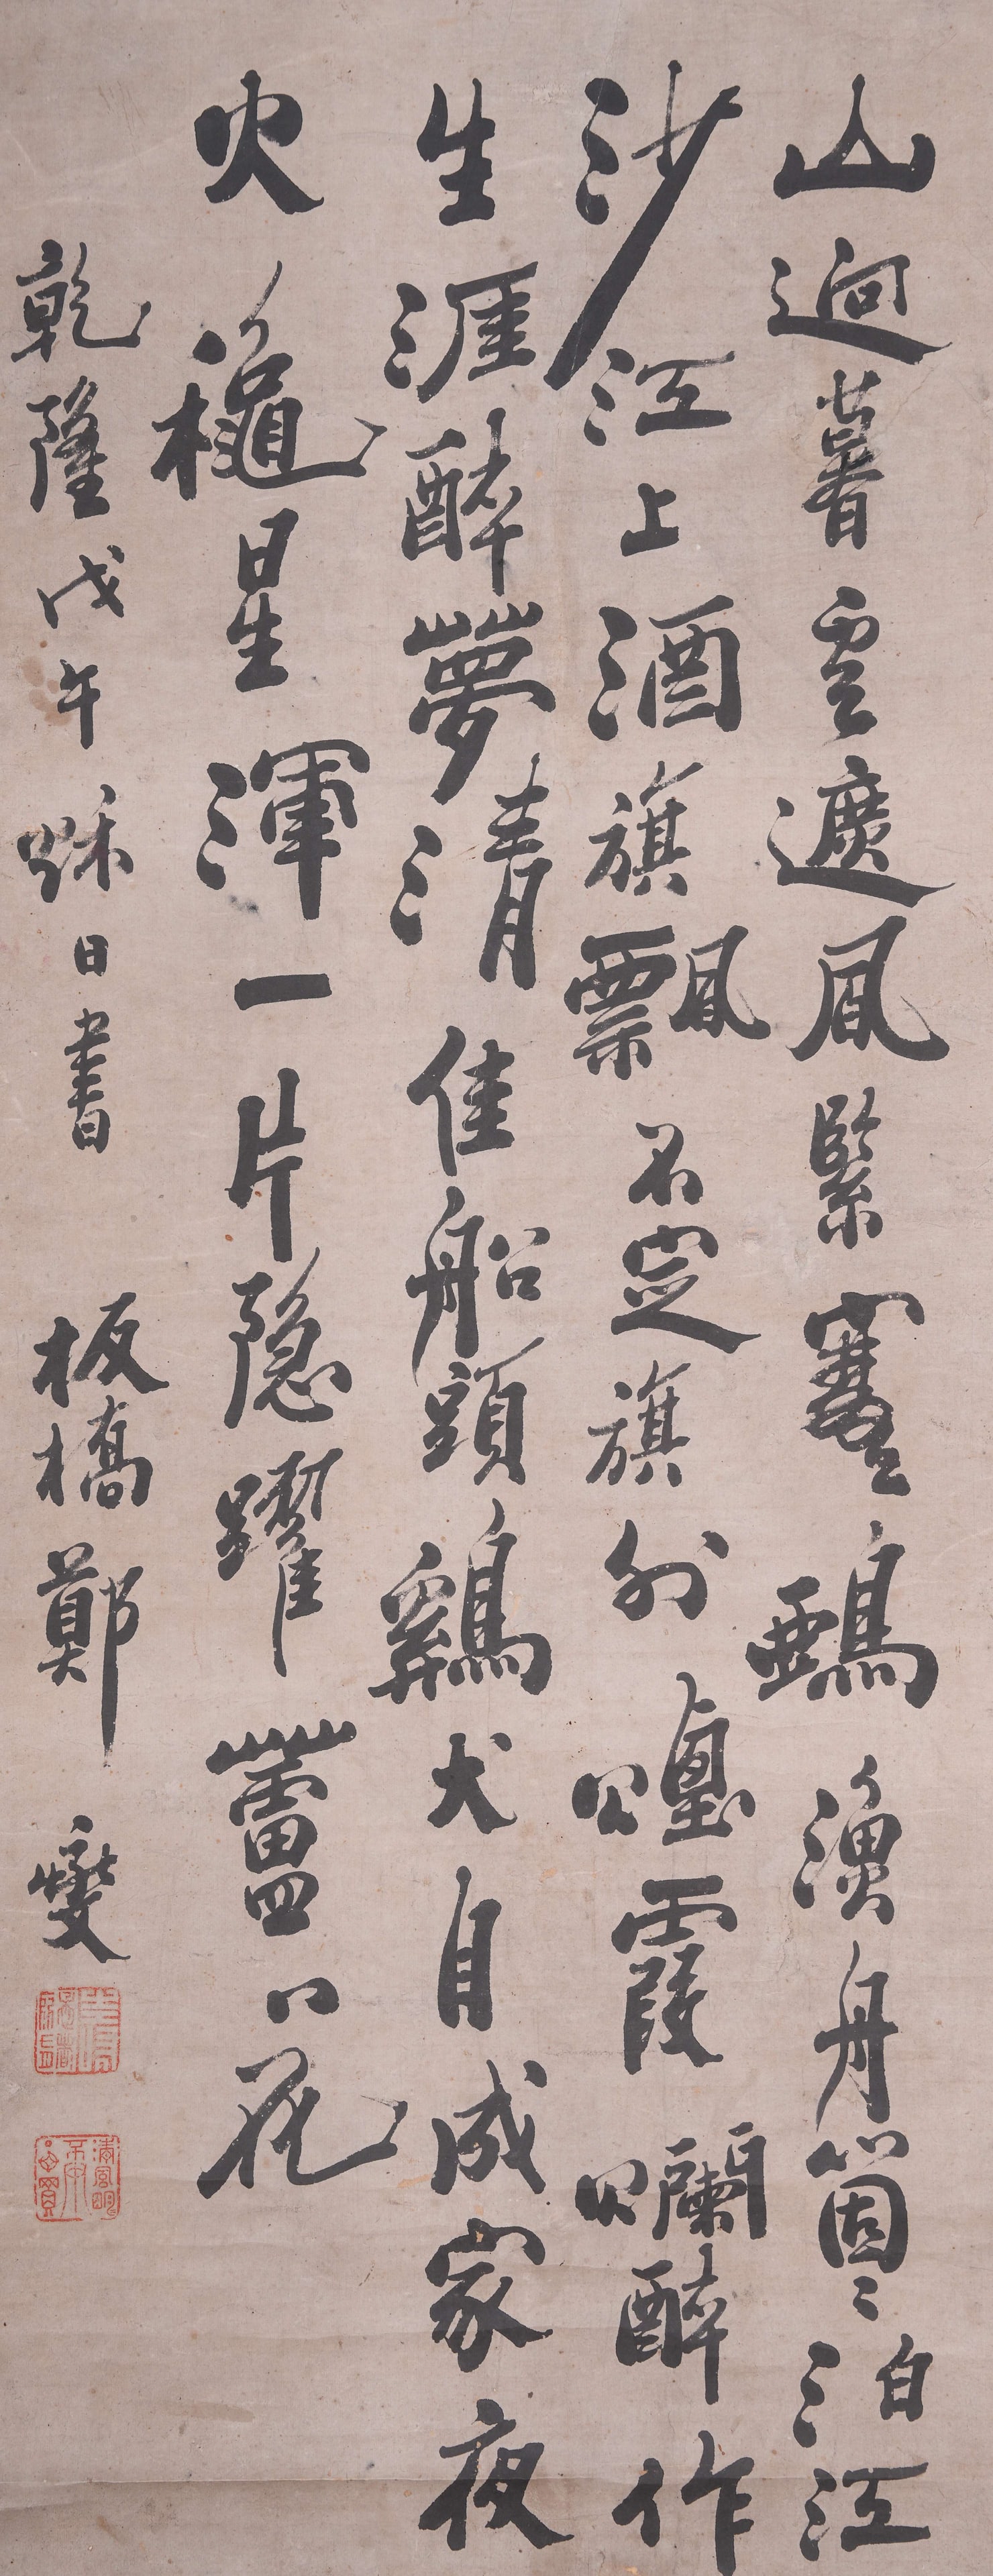 山迥暮雲遮風緊寒鵶漁舟箇〻泊江
沙江上酒旗飄不定旗外煙霞爛醉作
生涯醉夢清佳船頭鷄犬自成家夜
火龝星渾一片隱躍蘆花
乾隆戊午秌日書 板橋鄭燮